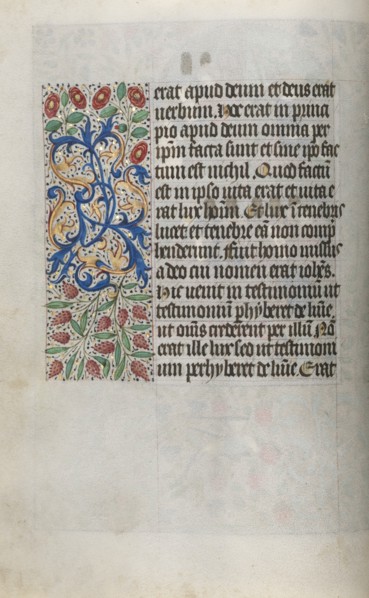 erat apud deum et deus erat
uerbum. Hoc erat in princi
pio apud deum omnia per
ipm facta sunt et sine ipo fac
tum est nichil. Quod factū
est in ipso uita erat et uita e
rat lux hoīm. Et lux ī tenebris
lucet et tenebre eā non comp
henderunt. Fuit homo missus
a deo cui nomen erat iohēs.
Hic uenit in testimoniū ut
testimoniū phyberet de lumīe,
ut oīns crederent per illū Nō
erat ille lux sed ut testimoni
um perhyberet de lumīe. Erat